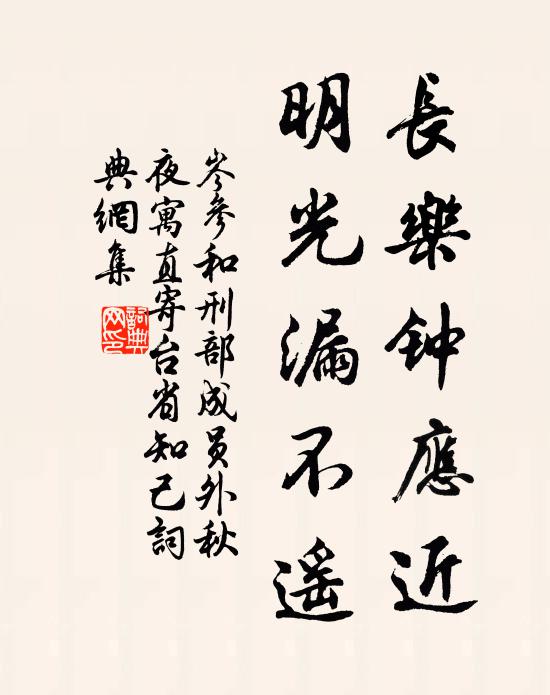 長樂钟應近
明光漏不遥
岑參和刑部成员外秋
夜寓直寄台省知己詞
典網集
詞典
网印